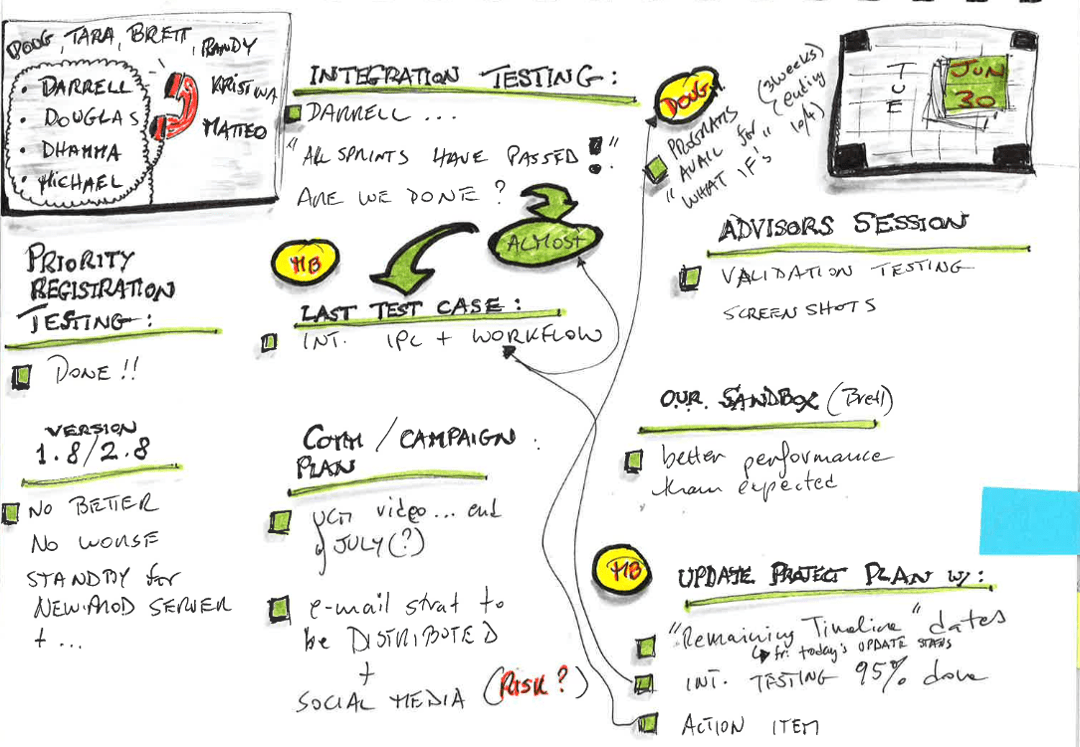 DOUG, TARA, BRETT, RANDY
KRISTINA
MATTEO
• DARRELL
• DOUGLAS
• DHAMMA
• MICHAEL
INTEGRATION TESTING:
DARRELL ...
"ALL SPRINTS HAVE PASSED!"
ARE WE DONE?
ALMOST
DOUG
PROGRAMS (3 weeks)
"AVAIL for (ending
WHAT IF'S" 10/4)
TUE
JUN
30
ADVISORS SESSION
VALIDATION TESTING
SCREEN SHOTS
PRIORITY
REGISTRATION
TESTING:
DONE!!
MB
LAST TEST CASE:
INT. IPC + WORKFLOW
OUR SANDBOX (Brett)
better performance
than expected
VERSION
1.8/2.8
NO BETTER
NO WORSE
STANDBY for
NEW PROD SERVER
+ ...
COMM / CAMPAIGN:
PLAN
video... end
JULY (?)
e-mail strat to
be DISTRIBUTED
+
SOCIAL MEDIA (RISK?)
MB
UPDATE PROJECT PLAN W/:
"Remaining Timeline" dates
today's UPDATE
INT. TESTING 95% done
ACTION ITEM